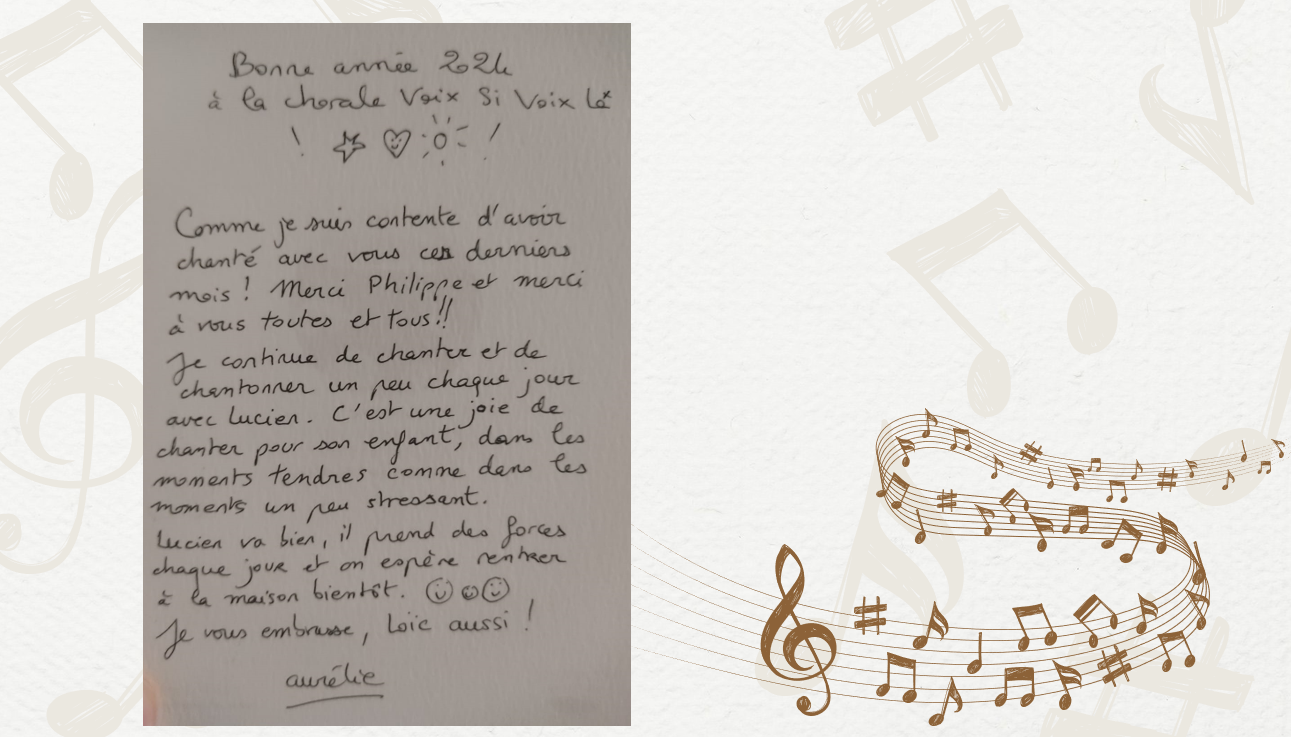 Bonne année 2024
à la chorale Voix Si Voix Là
! !
Comme je suis contente d'avoir
chanté avec vous ces derniers
mois ! Merci Philippe et merci
à vous toutes et tous !!
Je continue de chanter et de
chantonner un peu chaque jour
avec Lucien. C'est une joie de
chanter pour son enfant, dans les
moments tendres comme dans les
moments un peu stressant.
Lucien va bien, il prend des forces
chaque jour et on espère rentrer
à la maison bientôt.
Je vous embrasse, Loïc aussi !
aurélie